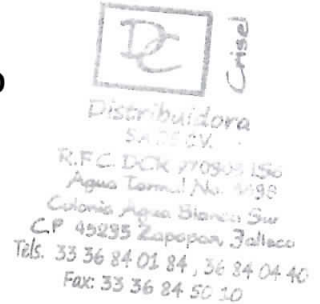 DC
Crisel
Distribuidora
S.A. DE C.V.
R.F.C. DCK
Agua Termal No. 1198
Colonia Agua Blanca Sur
C.P 45235 Zapopan, Jalisco
Tels. 33 36 84 01 84, 36 84 04 40
Fax: 33 36 84 50 10